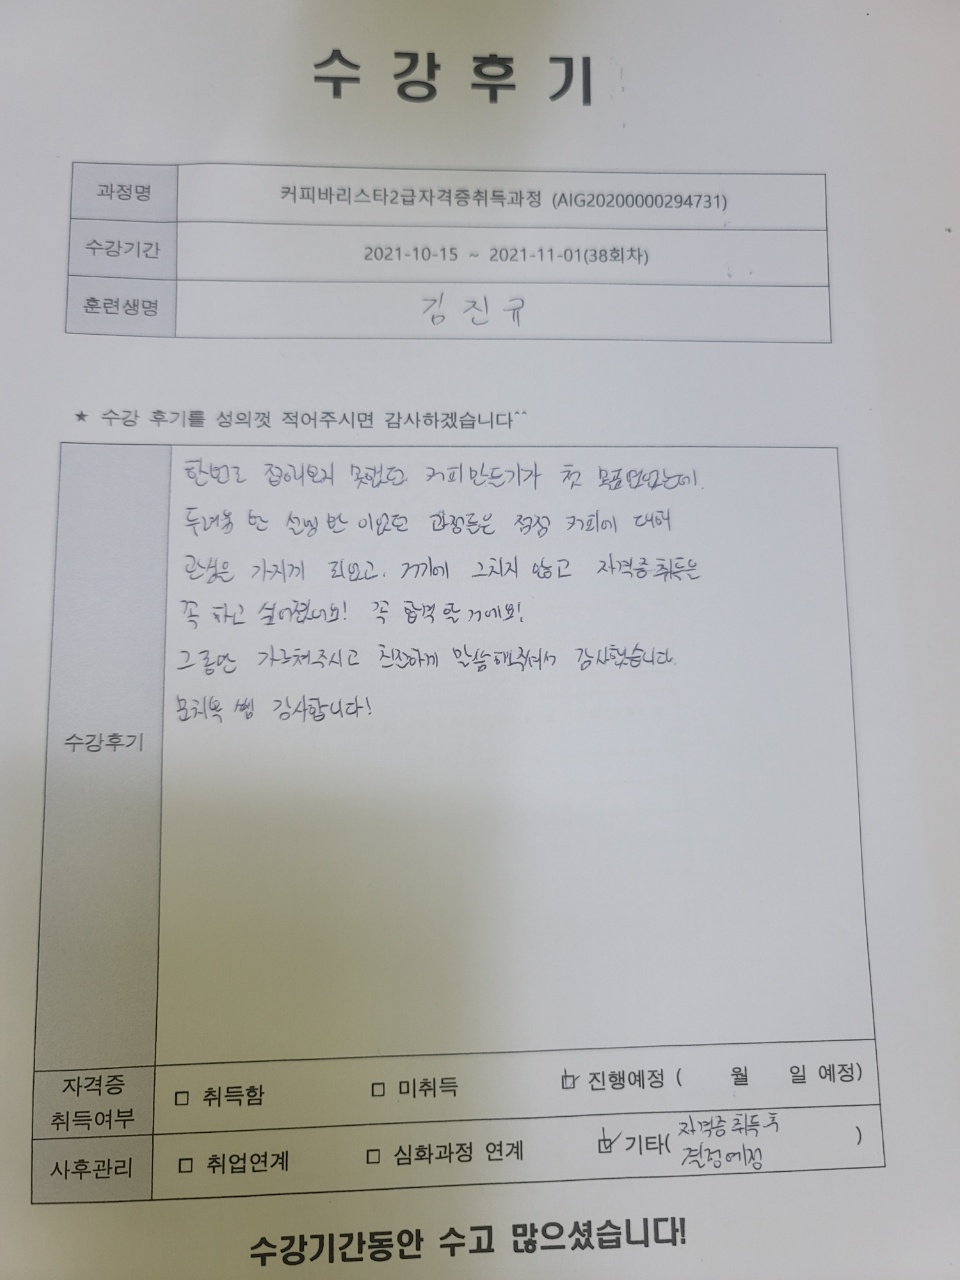 수강후기
과정명 커피바리스타2급자격증취득과정 (AIG20200000294731)
수강기간 2021-10-15 ~ 2021-11-01(38회차)
훈련생명 김진규
★ 수강 후기를 성의껏 적어주시면 감사하겠습니다^^
수강후기
한번도 접해보지 못했던 커피만들기가 첫 목표였었는데.
두려움 반 설렘 반 이었던 과정들은 점점 커피에 대해
관심을 가지게 되었고. 거기에 그치지 않고 자격증취득은
꼭 하고 싶어졌네요! 꼭 합격 할 거에요!
그동안 가르쳐주시고 친절하게 말씀해주셔서 감사했습니다.
쌤 감사합니다!
자격증 취득여부 □ 취득함 □ 미취득 ☑ 진행예정 ( 월 일 예정)
사후관리 □ 취업연계 □ 심화과정 연계 ☑ 기타( 자격증 취득 후 결정예정 )
수강기간동안 수고 많으셨습니다!